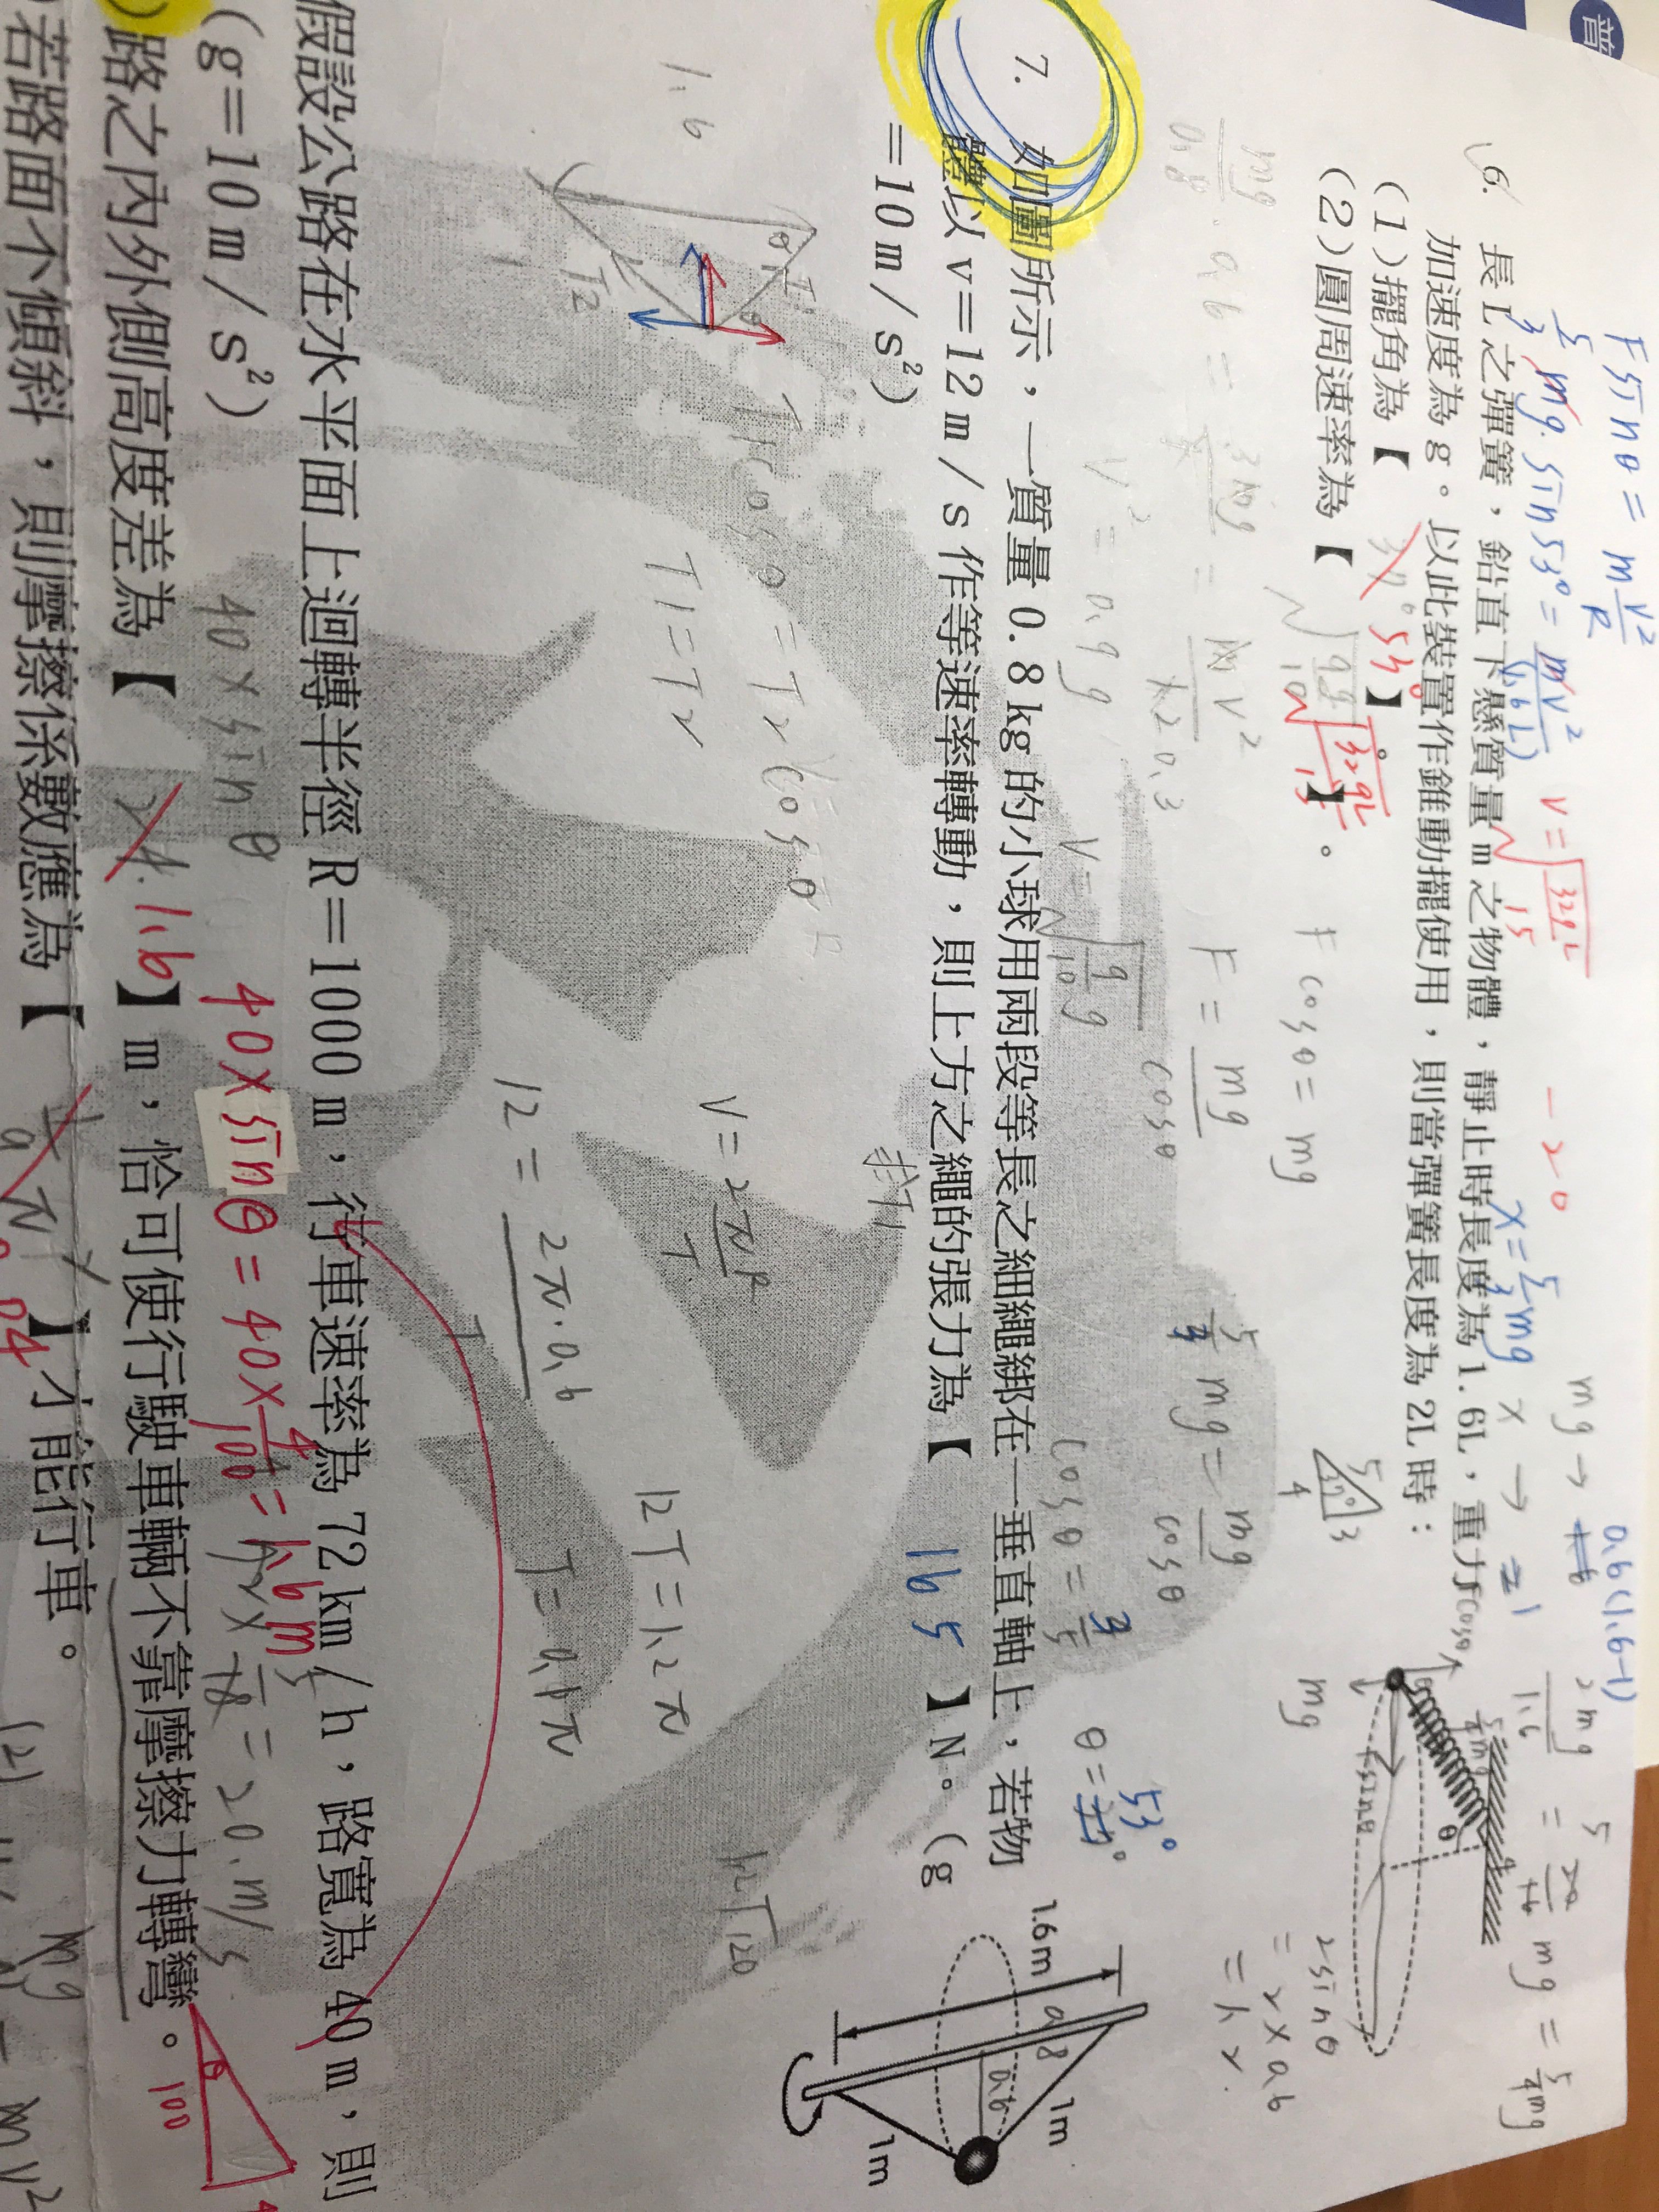 普
F sinθ = m v²/R
5/3 mg · sin53° = mv²/(1.6L)
V = √(32gL/15)
mg →
0.6(1.6-1)
6. 長 L 之彈簧，鉛直下懸質量 m 之物體，靜止時長度為 1.6L，重力
加速度為 g。以此裝置作錐動擺使用，則當彈簧長度為 2L 時：
(1)擺角為【 53° 】。
(2)圓周速率為【 √(32gL/15) 】。
F cosθ = mg
F = mg/cosθ
mg
F sinθ
θ
2sinθ
= 2×0.6
= 1.2
5/3 mg = mg/cosθ
cosθ = 3/5
θ = 53°
V² = 0.9g
V = √(9/10 g)
7. 如圖所示，一質量 0.8 kg 的小球用兩段等長之細繩綁在一垂直軸上，若物
體以 v＝12 m／s 作等速率轉動，則上方之繩的張力為【 165 】N。(g
＝10 m／s²)
求T1
1.6m
0.8
0.6
1m
1m
1.6
T2
θ
T1 = T2
V = 2πR/T
12 = 2π·0.6/T
12T = 1.2π
T = 0.1π
假設公路在水平面上迴轉半徑 R＝1000 m，行車速率為 72 km／h，路寬為 40 m，則
(g＝10 m／s²)
40×sinθ
40×sinθ = 40×4/100 = 1.6m
= 20 m/s
路之內外側高度差為【 1.6 】m，恰可使行駛車輛不靠摩擦力轉彎。
若路面不傾斜，則摩擦係數應為【 0.04 】才能行車。
θ
100